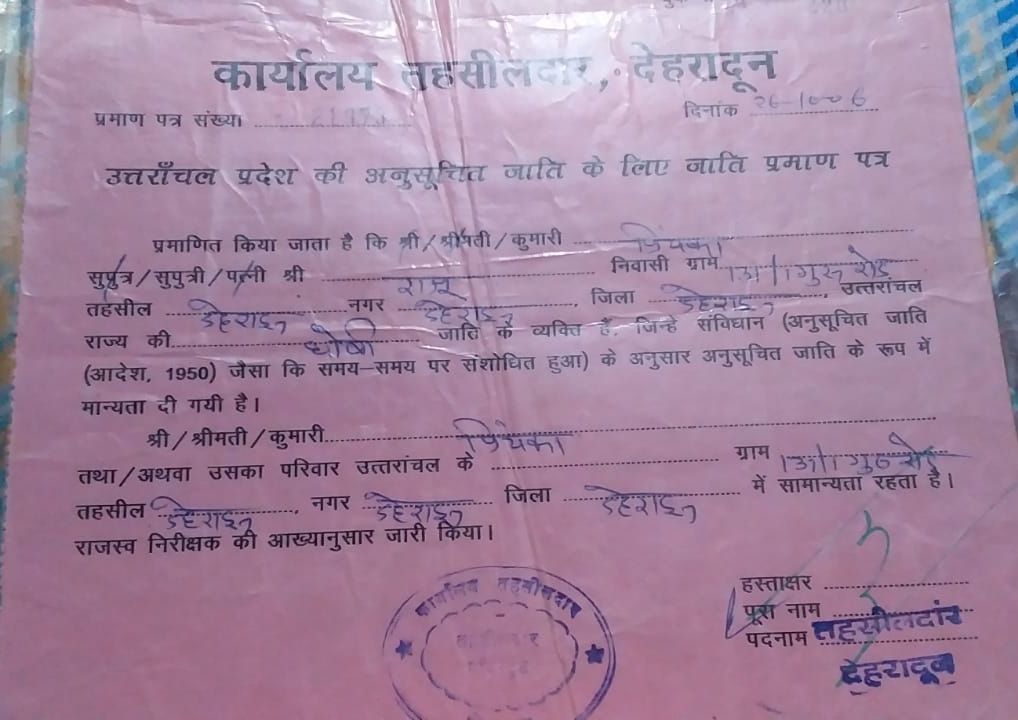 कार्यालय तहसीलदार, देहरादून
प्रमाण पत्र संख्या ........ दिनांक 26-10-06
उत्तराँचल प्रदेश की अनुसूचित जाति के लिए जाति प्रमाण पत्र
प्रमाणित किया जाता है कि श्री/श्रीमती/कुमारी ........
सुपुत्र/सुपुत्री/पत्नी श्री राजू निवासी ग्राम रोड
तहसील देहरादून नगर देहरादून, जिला देहरादून, उत्तरांचल
राज्य की धोबी जाति के व्यक्ति हैं, जिन्हे संविधान (अनुसूचित जाति
(आदेश, 1950) जैसा कि समय-समय पर संशोधित हुआ) के अनुसार अनुसूचित जाति के रूप में
मान्यता दी गयी है।
श्री/श्रीमती/कुमारी........
तथा/अथवा उसका परिवार उत्तरांचल के ........ ग्राम रोड
तहसील देहरादून, नगर देहरादून जिला देहरादून में सामान्यता रहता है।
राजस्व निरीक्षक की आख्यानुसार जारी किया।
हस्ताक्षर ........
पूरा नाम ........
पदनाम तहसीलदार
देहरादून
कार्यालय तहसीलदार